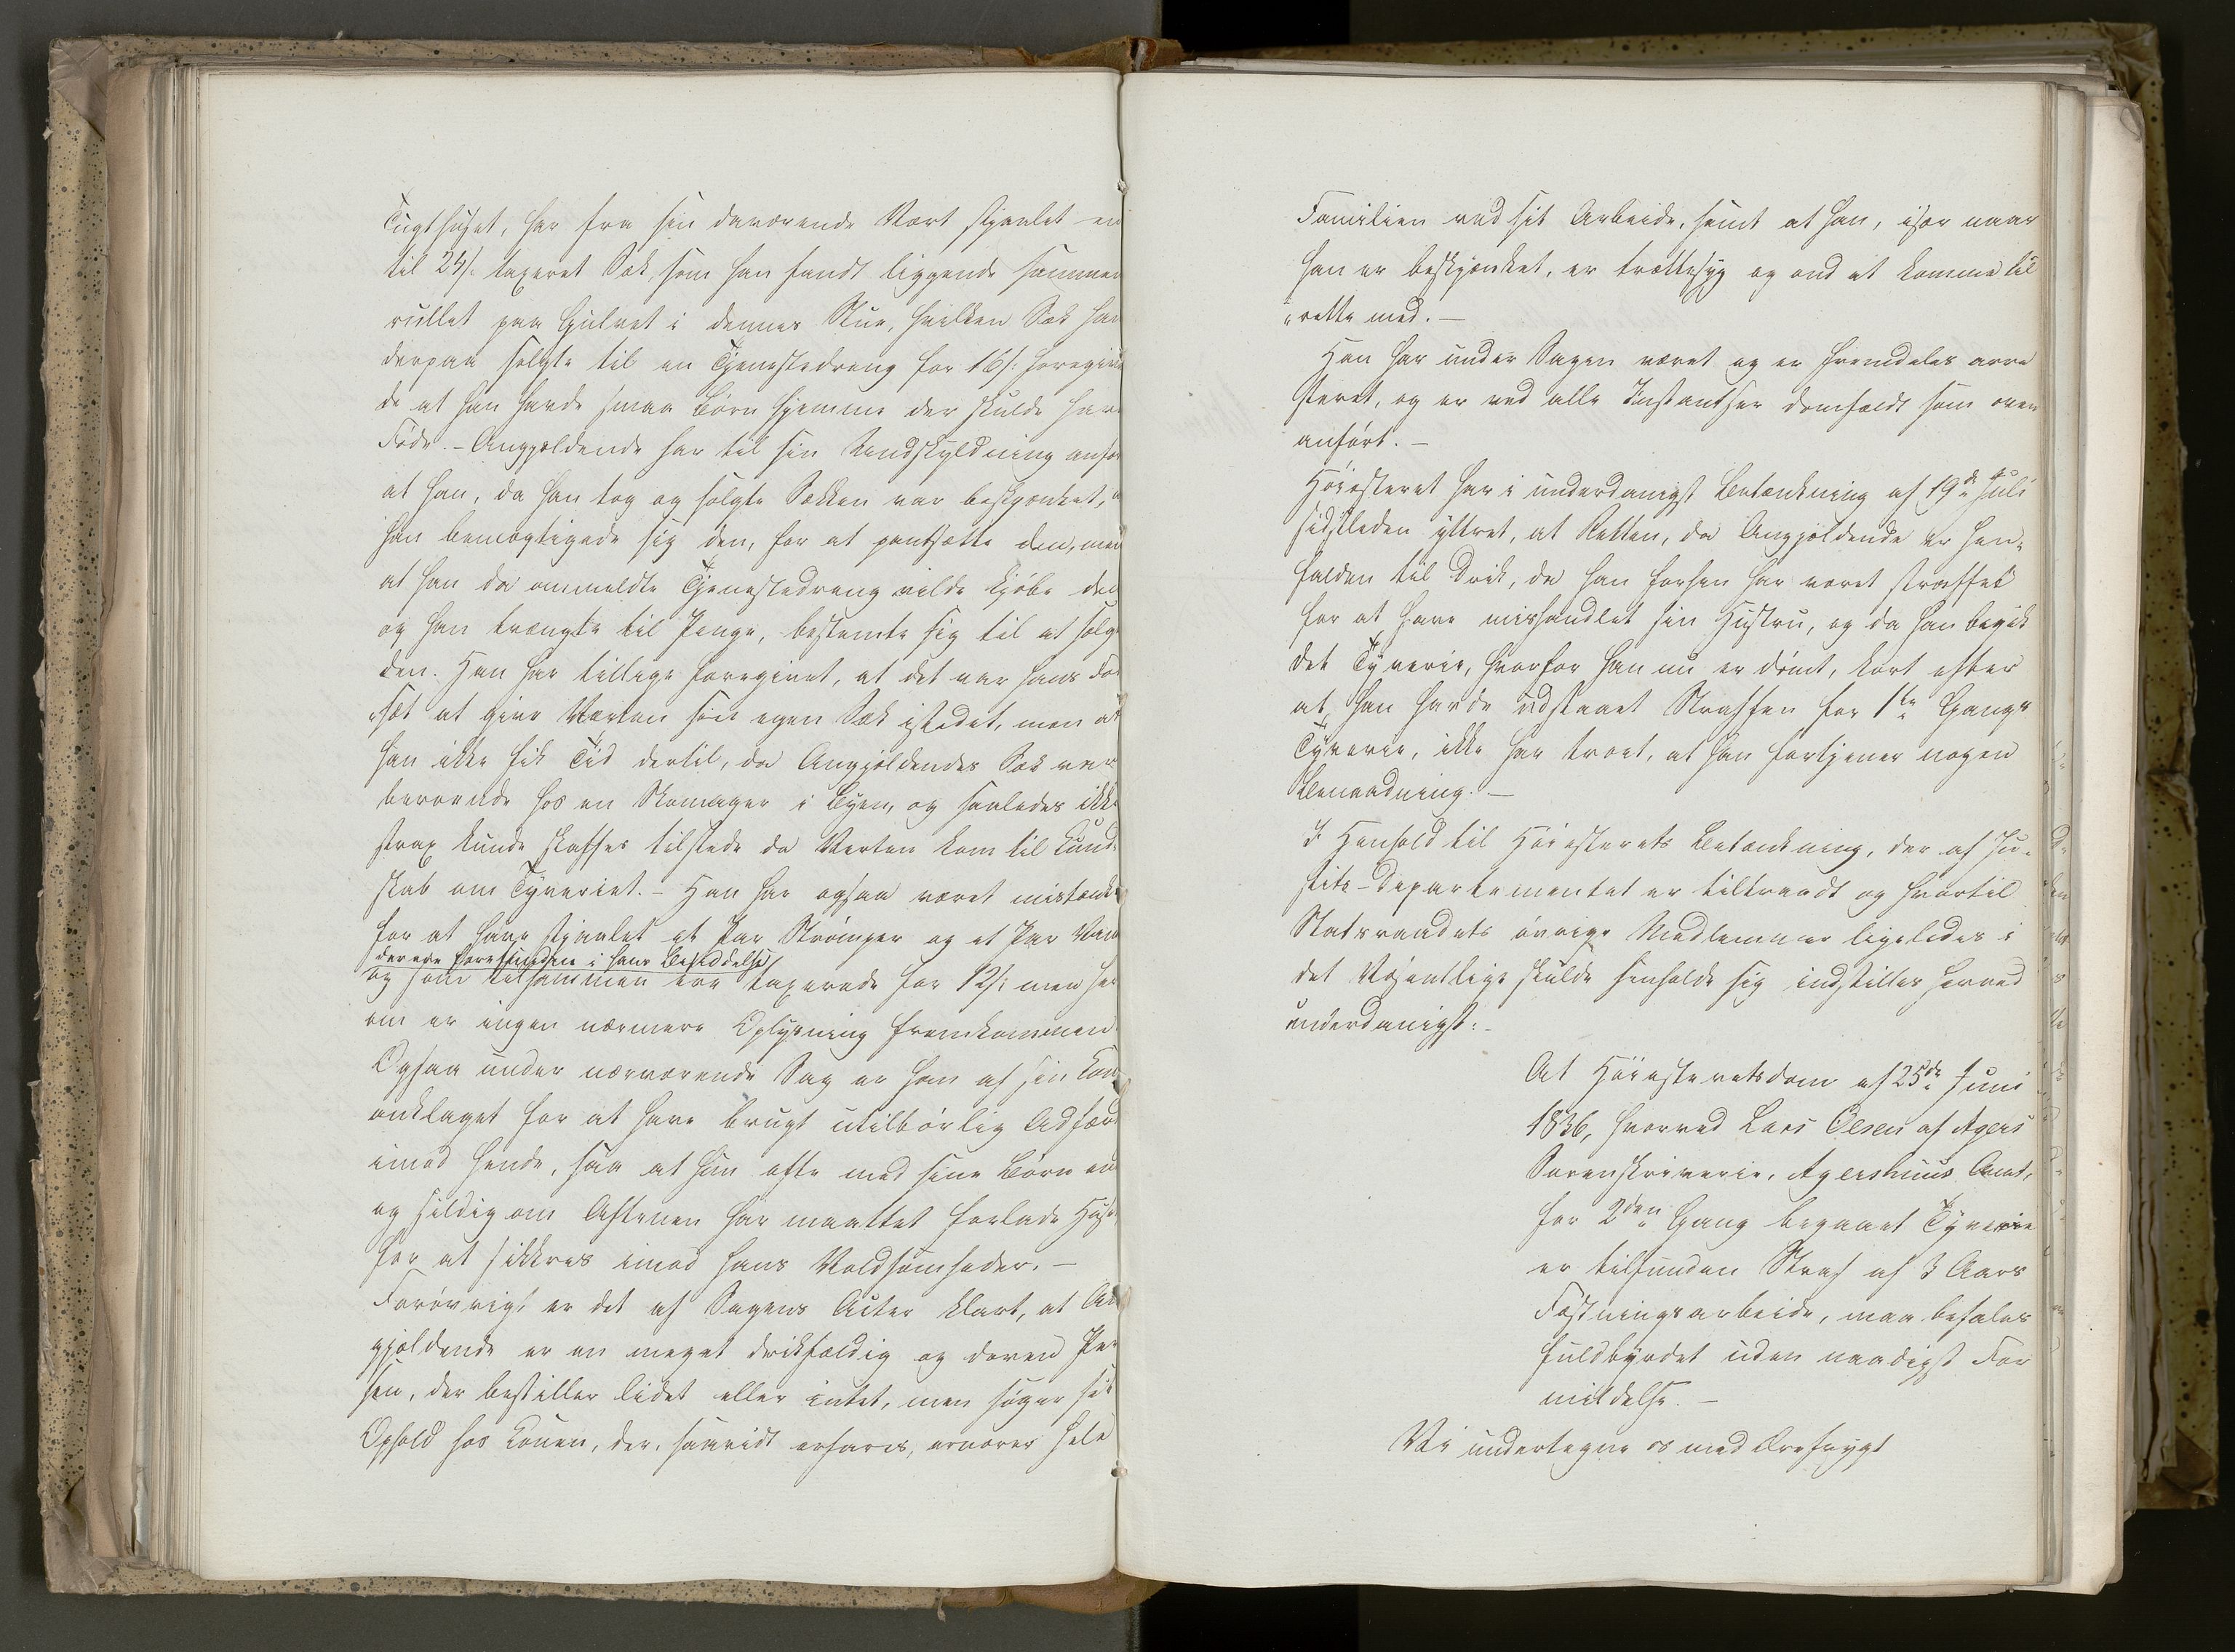 Tugthuset, har fra sin daværende Vært stjaalet en
til 24 s. taxeret Sæk, som han fandt liggende sammen
rullet paa Gulvet i dennes Stue, hvilken Sæk han
derpaa solgte til en Tjenestedreng for 16 s: foregiven
de at han havde smaa Børn hjemme der skulde have
Føde. – Angjældende har til sin Undskyldning anfør
at han, da han tog og solgte Sækken var beskjænket,
han bemægtigede sig den, for at pantsætte den, men
at han da ommeldte Tjenestedreng vilde kjøbe den
og han trængte til Penge, bestemte sig til at sælge
den. Han har tillige foregivet, at det var hans For
„sæt at give Værten sin egen Sæk istedet, men at
han ikke fik Tid dertil, da Angjældendes Sæk var
beroende hos en Skomager i Byen, og saaledes ikke
strax kunde skaffes tilstede da Verten kom til Kund-
skab om Tyveriet. – Han har ogsaa været mistænkt
for at have stjaalet et Par Strømper og et Par Van
der ere forefundne i hans Besiddelse
og som tilsammen ere taxerede for 12 s: men her
om er ingen nærmere Oplysning fremkommen
Ogsaa under nærværende Sag er han af sin Kone
anklaget for at have brugt utilbørlig Adfærd
imod hende, saa at hun ofte med sine Børn
og sildig om Aftenen har maattet forlade Huset
for at sikkres imod hans Voldsomheder. –
Forøvrigt er det af Sagens Acter klart, at An
gjældende er en meget drikfældig og doven Per
son, der bestiller lidet eller intet, men søger sit
Ophold hos Konen, der, saavidt erfares, ernærer hele
Familien ved sit Arbeide, samt at han, især naar
han er beskjænket, er trættesyg og ond at komme til
„rette med. –
Han har under Sagen været og er fremdeles arre
steret, og er ved alle Instantser domfældt som oven
anført. –
Høiesteret har i underdanigst Betænkning af 19de Juli
sidstleden yttret, at Retten, da Angjældende er hen-
falden til Drik, da han forhen har været straffet
for at have mishandlet sin Hustru, og da han begik
det Tyverie, hvorfor han nu er dømt, kort efter
at han havde udstaaet Straffen for 1ste Gangs
Tyverie, ikke har troet, at han fortjener nogen
Benaadning. –
I Henhold til Høiesterets Betænkning, der af Ju-
stits-Departementet er tiltraadt og hvortil
Statsraadets øvrige Medlemmer ligeledes i
det Væsentlige skulde henholde sig indstilles herved
underdanigst: –
At Høiesteretsdom af 25de Juni
1836, hvorved Lars Olsen af Agers
Sorenskriverie, Agershuus Amt,
for 2den Gang begaaet Tyverie
er tilfunden Straf af 3 Aars
Fæstningsarbeide, maa befales
fuldbyrdet uden naadigst For
mildelse. –
Vi undertegne os med Ærefrygt